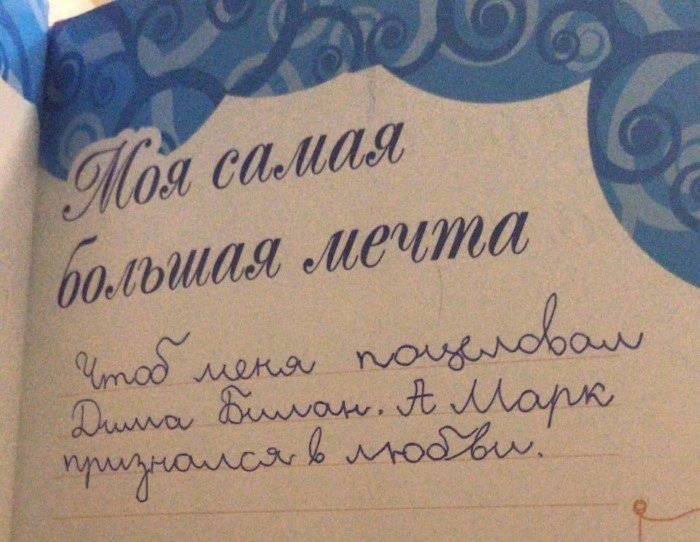 Моя самая
большая мечта
Чтоб меня поцеловал
Дима Билан. А Марк
признался в любви.